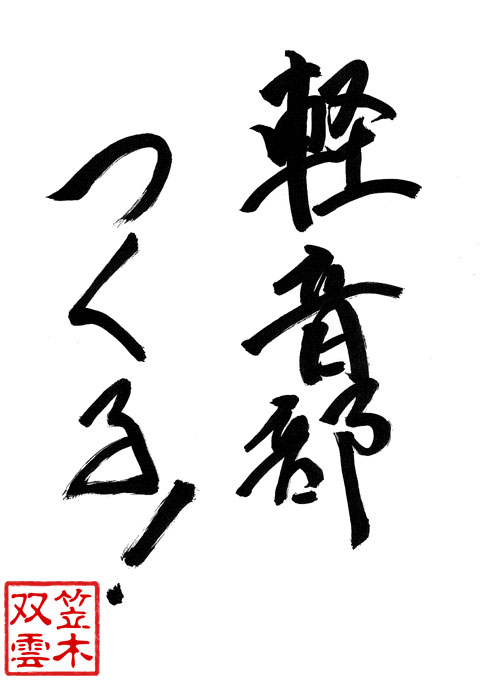 軽音部
つくる!
笠木
双雲